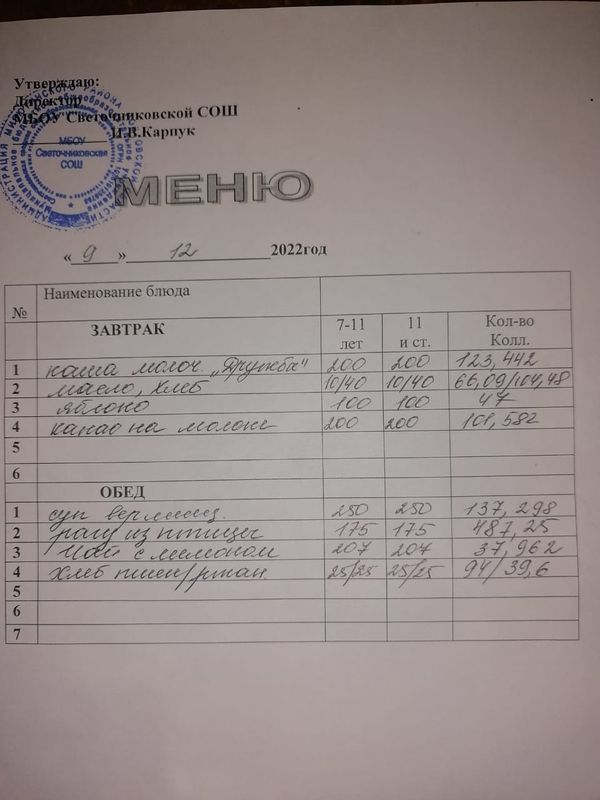 Утверждаю:
Директор
МБОУ Светочниковской СОШ
И.В.Карпук
МБОУ
Светочниковская
СОШ
МЕНЮ
« 9 » 12 2022год
№ Наименование блюда
ЗАВТРАК 7-11 лет 11 и ст. Кол-во Колл.
1 каша молоч. „Дружба" 200 200 123,442
2 масло, хлеб 10/40 10/40 66,09/104,48
3 яблоко 100 100 47
4 какао на молоке 200 200 101,582
5
6
ОБЕД
1 суп вермишел. 250 250 137,298
2 рагу из птицы 175 175 487,25
3 Чай с лимоном 207 207 37,962
4 хлеб пшен/ржан 25/25 25/25 94/39,6
5
6
7